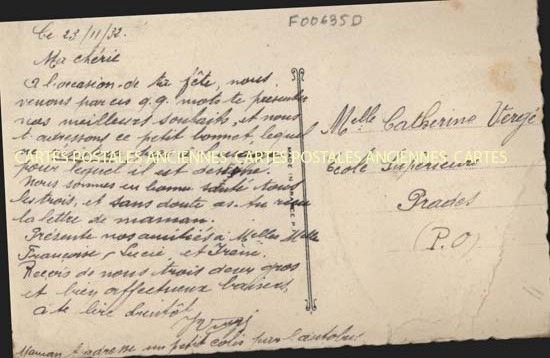 F00635D
Le 23/11/32.
Ma chérie
A l'occasion de ta fête, nous
venons par ces q.q. mots te présenter
nos meilleurs souhaits, et nous
t'adressons ce petit bonnet lequel
CARTES POSTALES ANCIENNES CARTES POSTALES ANCIENNES CARTES
pour lequel il est destiné.
Nous sommes en bonne santé tous
les trois, et sans doute as-tu reçu
la lettre de maman.
Présente nos amitiés à Melles
Françoise, Lucie, et Irène.
Reçois de nous trois deux gros
et bien affectueux baisers
à te lire bientôt
Maman t'adresse un petit colis par l'autobus
MADE IN FRANCE
Melle Catherine Vergé
École Supérieure
Prades
(P.O)